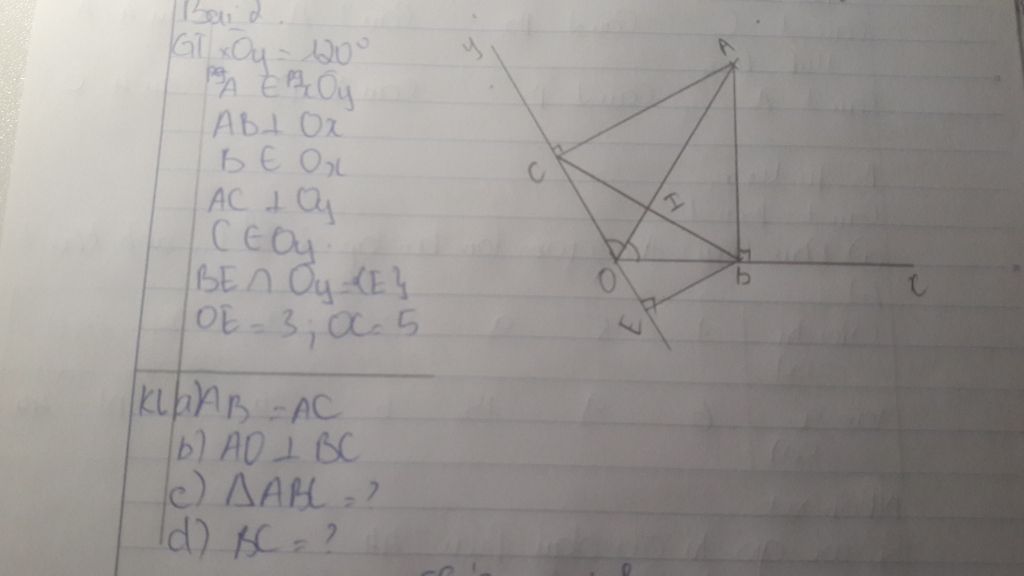 Bài 2.
GT xOy = 120°
A ∈ xOy
AB ⊥ Ox
B ∈ Ox
AC ⊥ Oy
C ∈ Oy.
BE ∩ Oy = {E}
OE = 3; OC = 5
KL a) AB = AC
b) AO ⊥ BC
c) ΔABC = ?
d) BC = ?
y
A
C
H
O
B
x
E